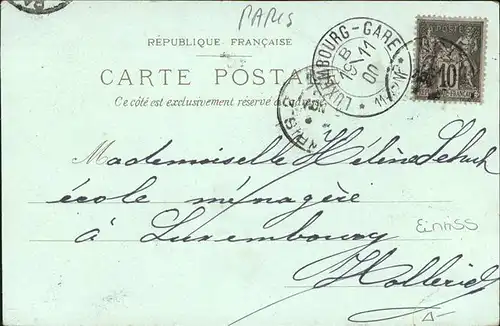 PARIS
RÉPUBLIQUE FRANÇAISE
CARTE POSTALE
Ce côté est exclusivement réservé à l'adresse
LUXEMBOURG-GARE
19/11
00
10
Mademoiselle Hélène
école ménagère
à Luxembourg
Hollerich
Einriss